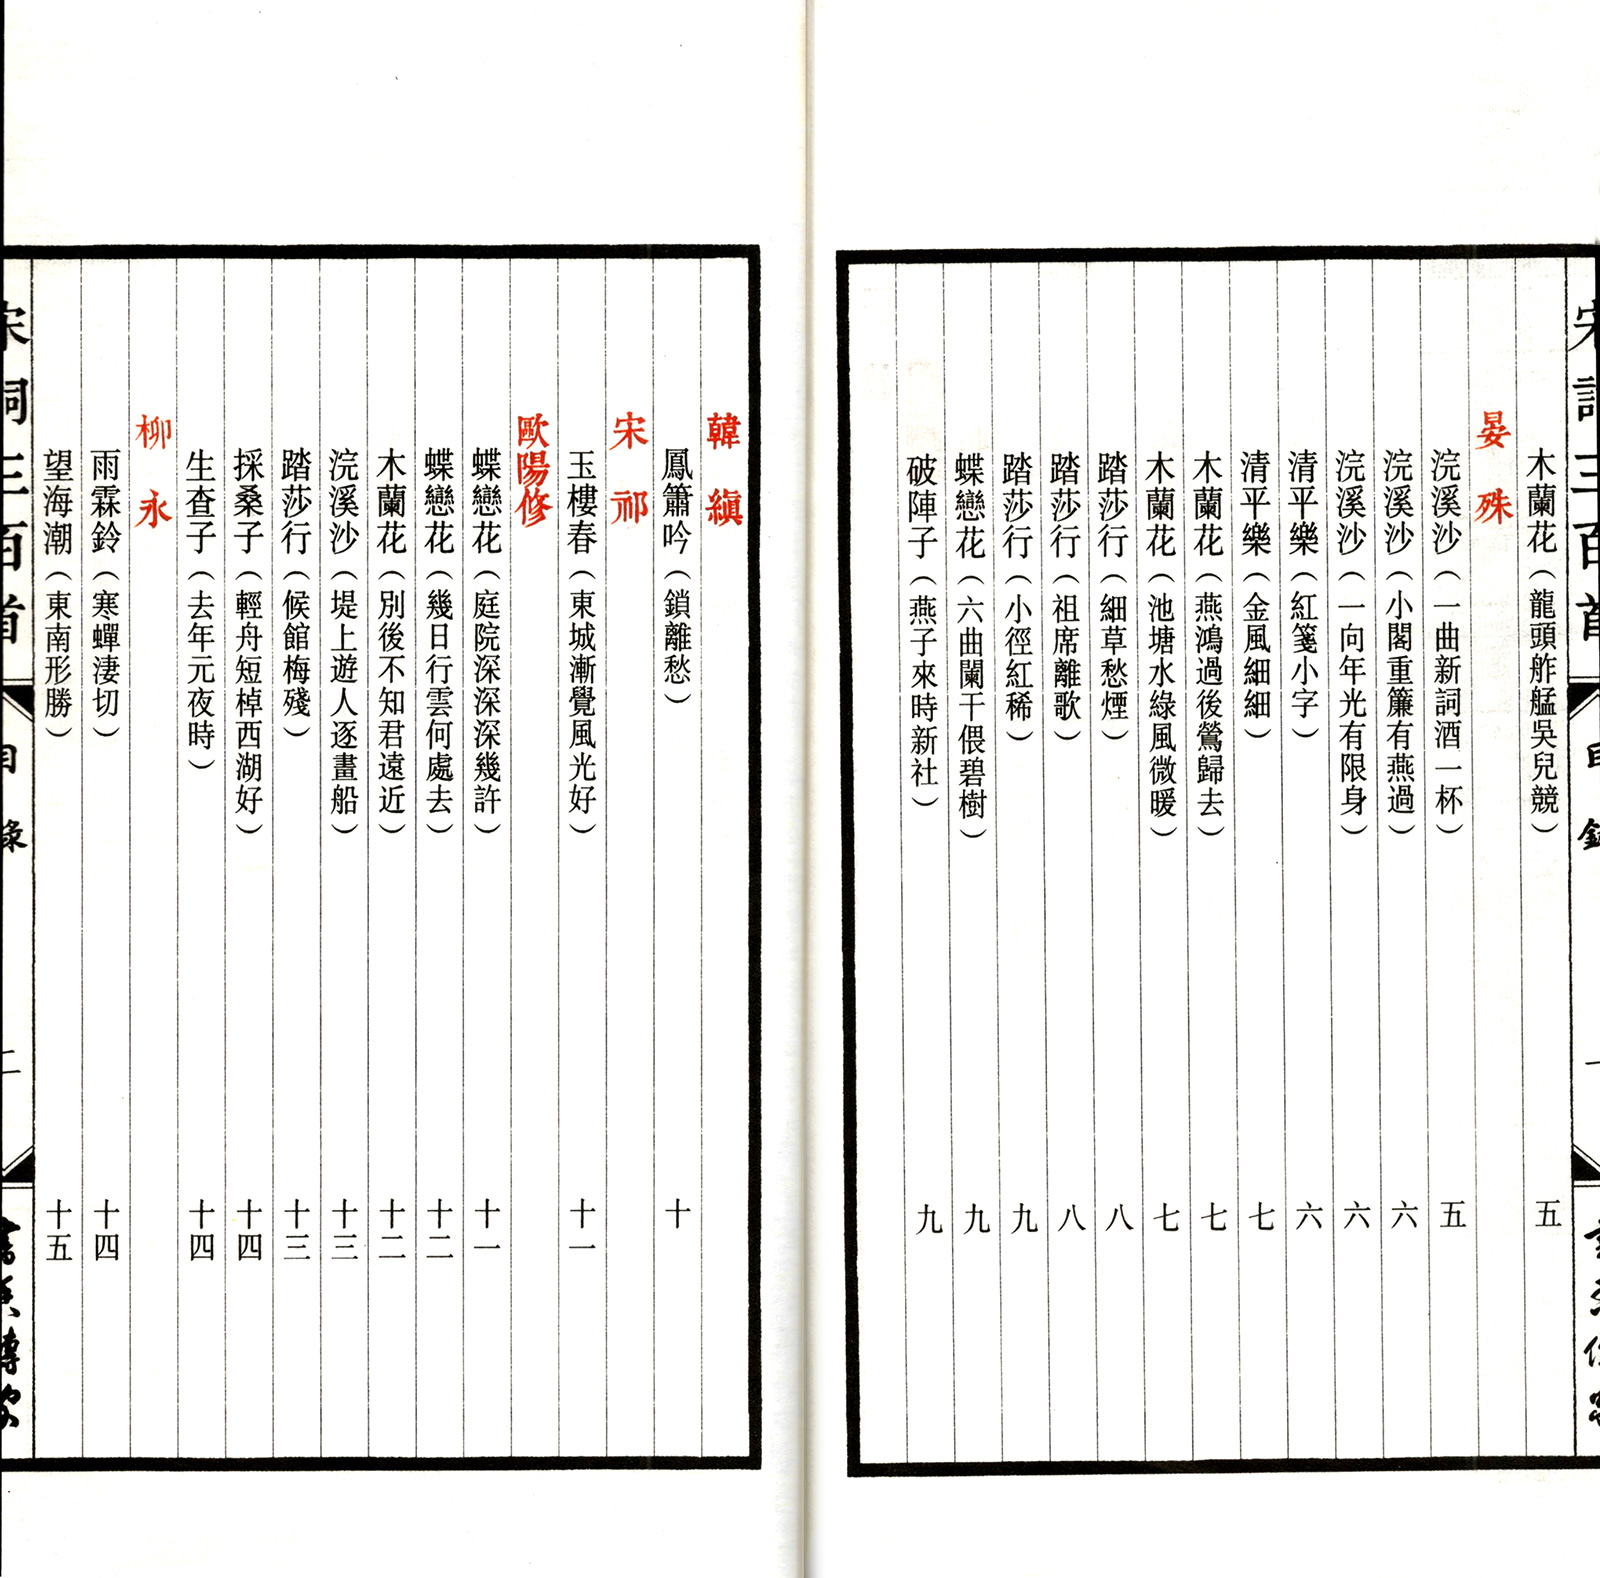 宋詞三百首 目錄 一
木蘭花（龍頭舴艋吳兒競） 五
晏殊
浣溪沙（一曲新詞酒一杯） 五
浣溪沙（小閣重簾有燕過） 六
浣溪沙（一向年光有限身） 六
清平樂（紅箋小字） 六
清平樂（金風細細） 七
木蘭花（燕鴻過後鶯歸去） 七
木蘭花（池塘水綠風微暖） 七
踏莎行（細草愁煙） 八
踏莎行（祖席離歌） 八
踏莎行（小徑紅稀） 九
蝶戀花（六曲闌干偎碧樹） 九
破陣子（燕子來時新社） 九
韓縝
鳳簫吟（鎖離愁） 十
宋祁
玉樓春（東城漸覺風光好） 十一
歐陽修
蝶戀花（庭院深深深幾許） 十一
蝶戀花（幾日行雲何處去） 十二
木蘭花（別後不知君遠近） 十二
浣溪沙（堤上遊人逐畫船） 十三
踏莎行（候館梅殘） 十三
採桑子（輕舟短棹西湖好） 十四
生查子（去年元夜時） 十四
柳永
雨霖鈴（寒蟬淒切） 十四
望海潮（東南形勝） 十五
宋詞三百首 目錄 二